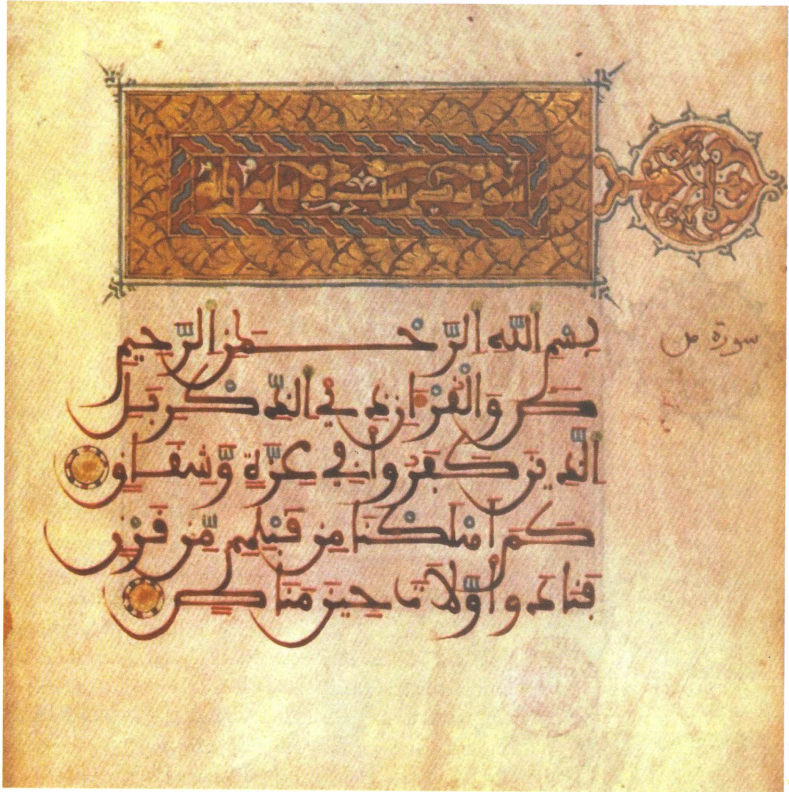 سورة
سورة ص
بِسْمِ اللَّهِ الرَّحْمَٰنِ الرَّحِيمِ
صَ وَالْقُرْءَانِ ذِي الذِّكْرِ بَلِ
الَّذِينَ كَفَرُوا فِي عِزَّةٍ وَّشِقَاقٍ
كَمَ اَهْلَكْنَا مِن قَبْلِهِم مِّن قَرْنٍ
فَنَادَوا وَّلَاتَ حِينَ مَنَاصٍ